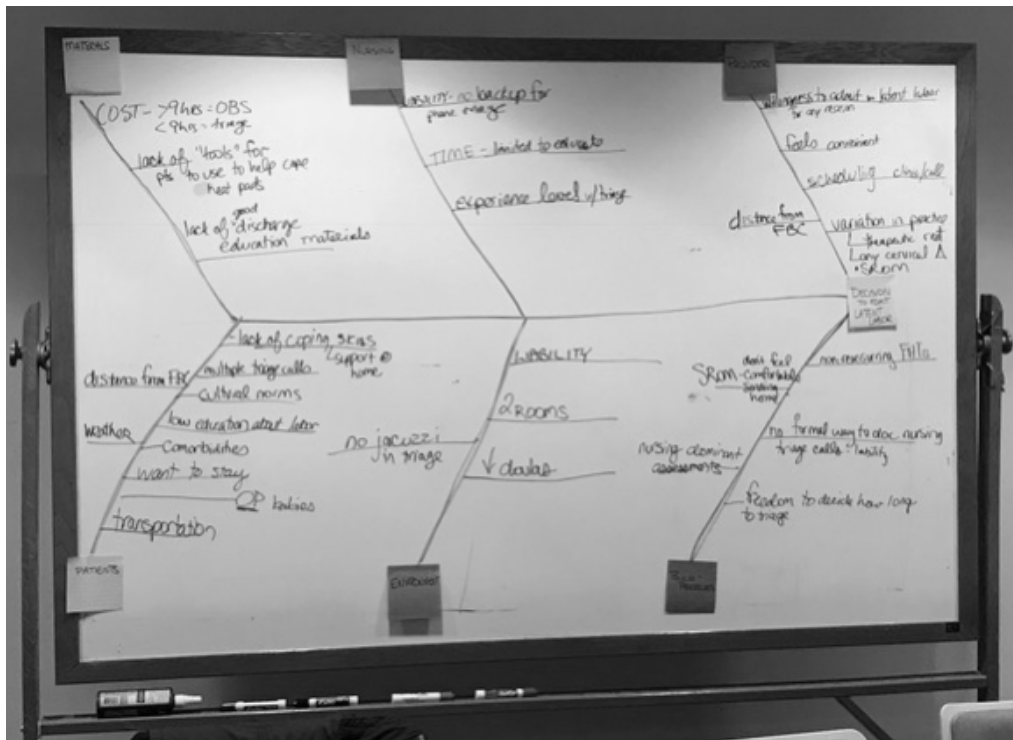 MATERIALS
COST - >9hrs = OBS
<9hrs = triage
lack of "tools" for
pts to use to help cope
heat packs
good
lack of discharge
education materials
NURSING
no backup for
phone triage
TIME - limited to
experience level w/triage
to admit in latent labor
for any reason
feels convenient
scheduling clinic/call
distance from
FBC
variation in practice
therapeutic rest
any cervical Δ
• SROM
DECISION
TO ADMIT
LATENT
LABOR
lack of coping skills
support @
home
distance from FBC
multiple triage calls
cultural norms
low education about labor
weather
Comorbidities
want to stay
OP babies
transportation
PATIENTS
LIABILITY
2 ROOMS
no jacuzzi
in triage
↓ doulas
don't feel
SROM - comfortable
sending
home
non reassuring FHTs
no formal way to doc nursing
triage calls - liability
nursing dominant
assessments
freedom to decide how long
to triage